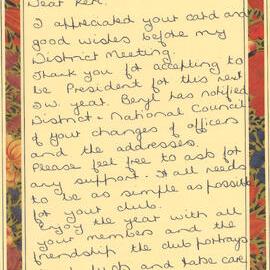 Dear Ken.
I appreciated your card and
good wishes before my
District Meeting.
Thank you for accepting to
be President for this next
I.W. year. Beryl has notified
District & National Council
of your changes of officers
and the addresses.
Please feel free to ask for
any support. It all needs
to be as simple as possible
for your club.
Enjoy the year with all
your members and the
friendship the club portrays
luck and take care